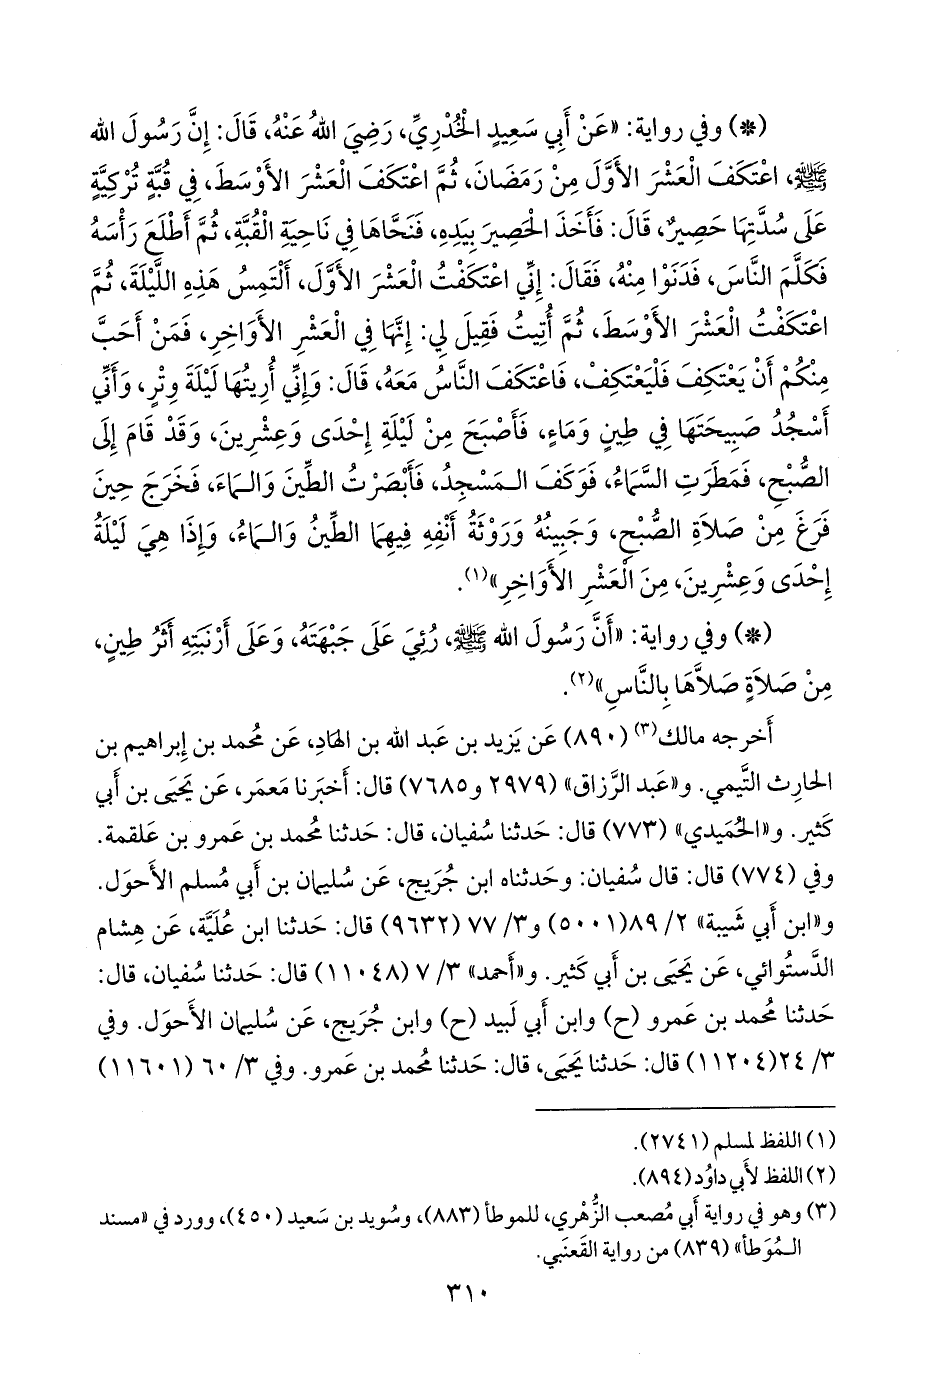 (*) وفي رواية: «عَنْ أَبِي سَعِيدٍ الْخُدْرِيِّ، رَضِيَ اللهُ عَنْهُ، قَالَ: إِنَّ رَسُولَ الله
ﷺ، اعْتَكَفَ الْعَشْرَ الأَوَّلَ مِنْ رَمَضَانَ، ثُمَّ اعْتَكَفَ الْعَشْرَ الأَوْسَطَ، فِي قُبَّةٍ تُرْكِيَّةٍ
عَلَى سُدَّتِهَا حَصِيرٌ، قَالَ: فَأَخَذَ الْحَصِيرَ بِيَدِهِ، فَنَحَّاهَا فِي نَاحِيَةِ الْقُبَّةِ، ثُمَّ أَطْلَعَ رَأْسَهُ
فَكَلَّمَ النَّاسَ، فَدَنَوْا مِنْهُ، فَقَالَ: إِنِّي اعْتَكَفْتُ الْعَشْرَ الأَوَّلَ، أَلْتَمِسُ هَذِهِ اللَّيْلَةَ، ثُمَّ
اعْتَكَفْتُ الْعَشْرَ الأَوْسَطَ، ثُمَّ أُتِيتُ فَقِيلَ لِي: إِنَّهَا فِي الْعَشْرِ الأَوَاخِرِ، فَمَنْ أَحَبَّ
مِنْكُمْ أَنْ يَعْتَكِفَ فَلْيَعْتَكِفْ، فَاعْتَكَفَ النَّاسُ مَعَهُ، قَالَ: وَإِنِّي أُرِيتُهَا لَيْلَةَ وِتْرٍ، وَأَنِّي
أَسْجُدُ صَبِيحَتَهَا فِي طِينٍ وَمَاءٍ، فَأَصْبَحَ مِنْ لَيْلَةِ إِحْدَى وَعِشْرِينَ، وَقَدْ قَامَ إِلَى
الصُّبْحِ، فَمَطَرَتِ السَّمَاءُ، فَوَكَفَ الْمَسْجِدُ، فَأَبْصَرْتُ الطِّينَ وَالْمَاءَ، فَخَرَجَ حِينَ
فَرَغَ مِنْ صَلاَةِ الصُّبْحِ، وَجَبِينُهُ وَرَوْثَةُ أَنْفِهِ فِيهِمَا الطِّينُ وَالْمَاءُ، وَإِذَا هِيَ لَيْلَةُ
إِحْدَى وَعِشْرِينَ، مِنَ الْعَشْرِ الأَوَاخِرِ»(١).
(*) وفي رواية: «أَنَّ رَسُولَ الله ﷺ، رُئِيَ عَلَى جَبْهَتَهُ، وَعَلَى أَرْنَبَتِهِ أَثَرُ طِينٍ،
مِنْ صَلاَةٍ صَلاَّهَا بِالنَّاسِ»(٢).
أَخرجه مالك(٣) (٨٩٠) عَن يَزيد بن عَبد الله بن الهَادِ، عَن مُحمد بن إِبراهيم بن
الحارِث التَّيمي. و«عَبد الرَّزاق» (٢٩٧٩ و٧٦٨٥) قال: أَخبَرنا مَعمَر، عَن يَحيَى بن أَبي
كَثير. و«الحُمَيدي» (٧٧٣) قال: حَدثنا سُفيان، قال: حَدثنا مُحمد بن عَمرو بن عَلقمة.
وفي (٧٧٤) قال: قال سُفيان: وحَدثناه ابن جُرَيج، عَن سُليمان بن أَبي مُسلم الأَحوَل.
و«ابن أَبي شَيبة» ٢/ ٨٩(٥٠٠١) و٣/ ٧٧ (٩٦٣٢) قال: حَدثنا ابن عُلَيَّة، عَن هِشام
الدَّستُوائي، عَن يَحيَى بن أَبي كَثير. و«أَحمد» ٣/ ٧ (١١٠٤٨) قال: حَدثنا سُفيان، قال:
حَدثنا مُحمد بن عَمرو (ح) وابن أَبي لَبيد (ح) وابن جُرَيج، عَن سُليمان الأَحوَل. وفي
٣/ ٢٤(١١٢٠٤) قال: حَدثنا يَحيَى، قال: حَدثنا مُحمد بن عَمرو. وفي ٣/ ٦٠ (١١٦٠١)
(١) اللفظ لمسلم (٢٧٤١).
(٢) اللفظ لأَبي داوُد (٨٩٤).
(٣) وهو في رواية أَبي مُصعب الزُّهري، للموطأ (٨٨٣)، وسُويد بن سَعيد (٤٥٠)، وورد في «مسند
المُوَطأ» (٨٣٩) من رواية القَعنَبي.
٣١٠